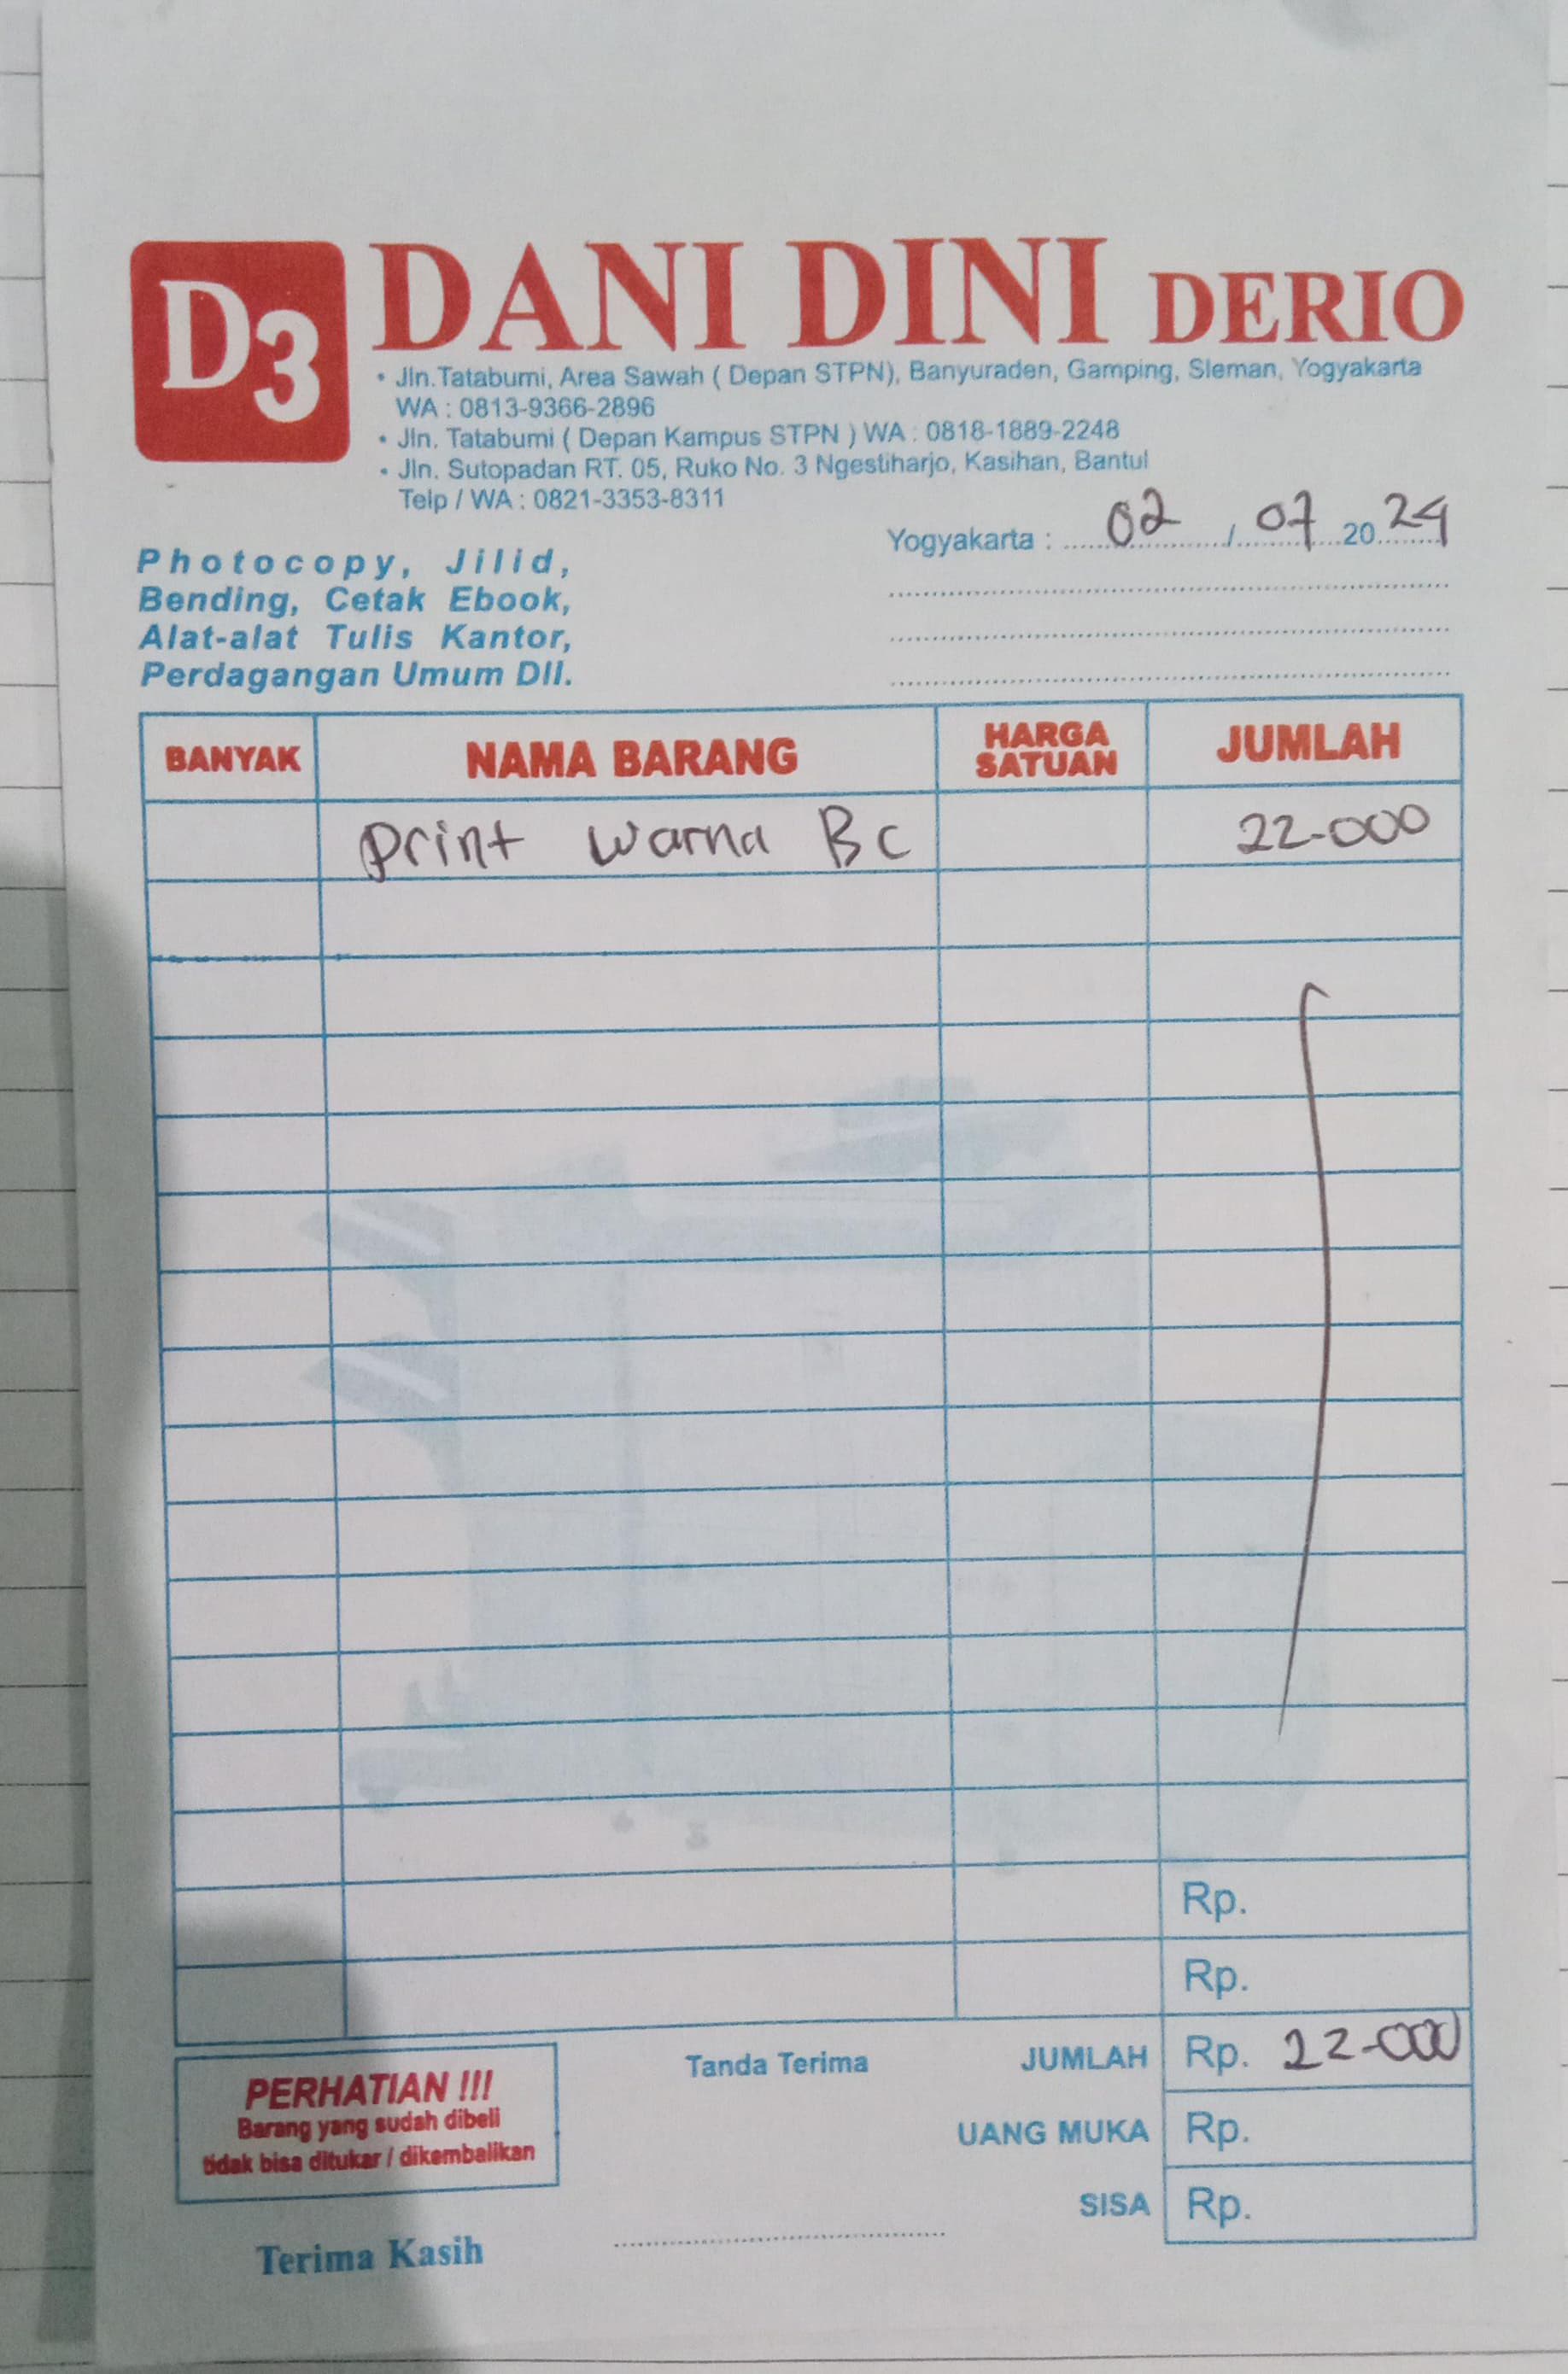 D3 DANI DINI DERIO
• Jln.Tatabumi, Area Sawah ( Depan STPN), Banyuraden, Gamping, Sleman, Yogyakarta
WA : 0813-9366-2896
• Jln. Tatabumi ( Depan Kampus STPN ) WA : 0818-1889-2248
• Jln. Sutopadan RT. 05, Ruko No. 3 Ngestiharjo, Kasihan, Bantul
Telp / WA : 0821-3353-8311
Yogyakarta : 02 / 07 20 24
Photocopy, Jilid,
Bending, Cetak Ebook,
Alat-alat Tulis Kantor,
Perdagangan Umum Dll.
BANYAK NAMA BARANG HARGA SATUAN JUMLAH
Print warna Bc 22-000
Rp.
Rp.
Tanda Terima JUMLAH Rp. 22-000
UANG MUKA Rp.
SISA Rp.
PERHATIAN !!!
Barang yang sudah dibeli
tidak bisa ditukar / dikembalikan
Terima Kasih